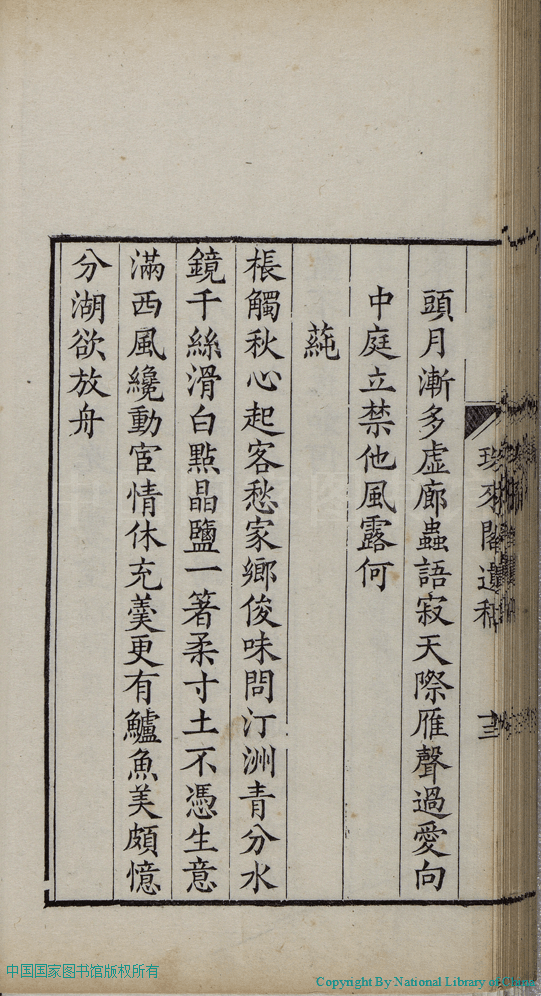 頭月漸多虛廊蟲語寂天際雁聲過愛向
中庭立禁他風露何
蒓
棖觸秋心起客愁家鄉俊味問汀洲青分水
鏡千絲滑白點晶鹽一箸柔寸土不憑生意
滿西風纔動宦情休充羹更有鱸魚美頗憶
分湖欲放舟
來閣遺稿
中国国家图书馆版权所有
Copyright By National Library of China